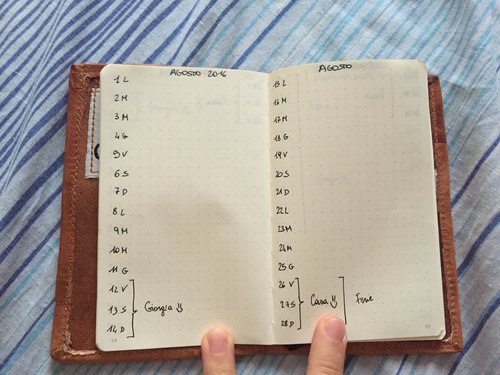 AGOSTO 2016
1 L
2 M
3 M
4 G
5 V
6 S
7 D
8 L
9 M
10 M
11 G
12 V
13 S Giorgia
14 D
AGOSTO
15 L
16 M
17 M
18 G
19 V
20 S
21 D
22 L
23 M
24 M
25 G
26 V
27 S Casa Forse
28 D